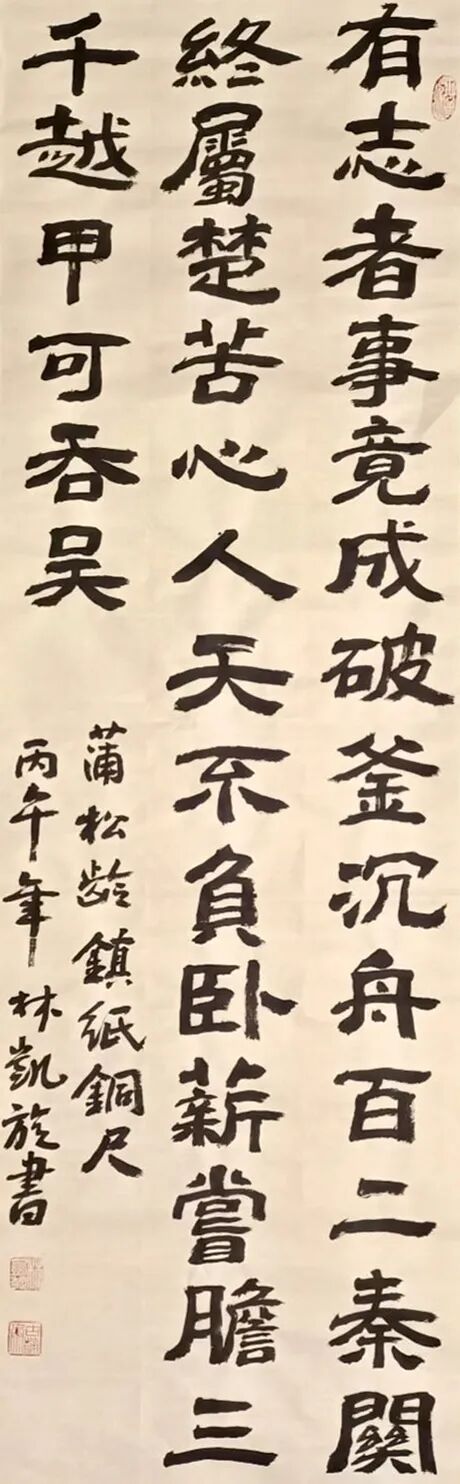 有志者事竟成破釜沉舟百二秦關
終屬楚苦心人天不負卧薪嘗膽三
千越甲可吞吴
蒲松齡鎮紙銅尺
丙午年林凱旋書